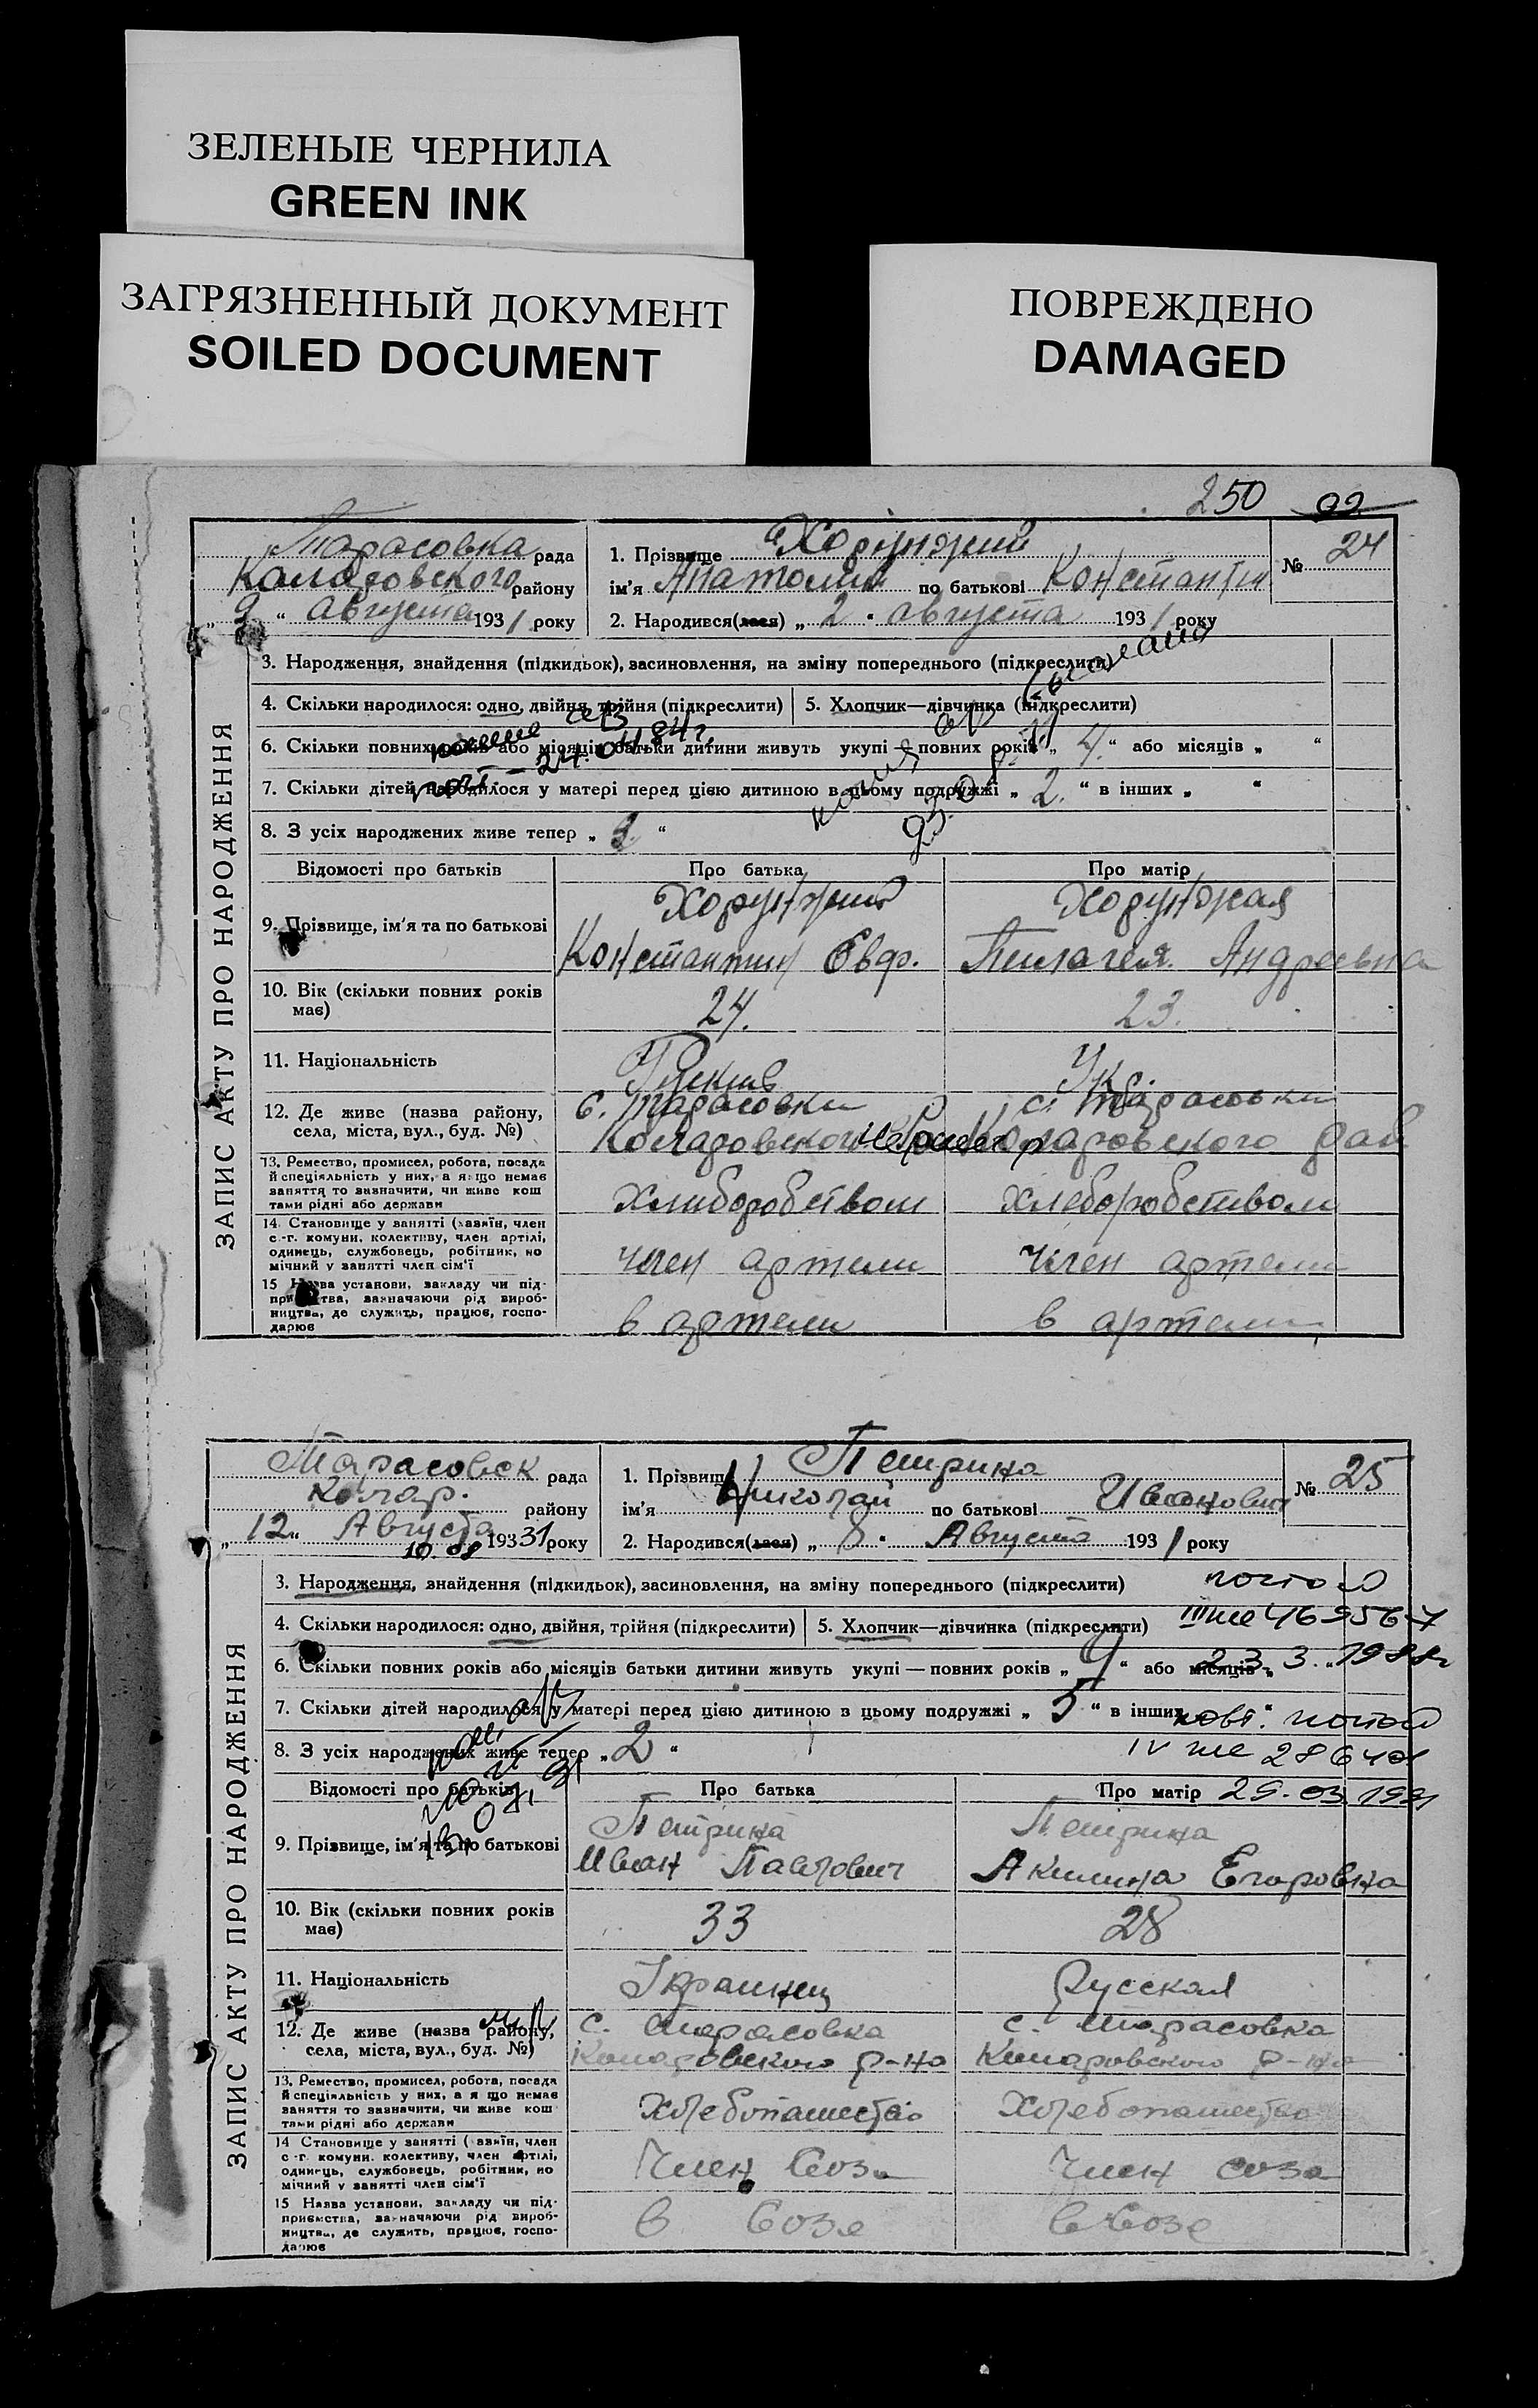 ЗЕЛЕНЫЕ ЧЕРНИЛА
GREEN INK
ЗАГРЯЗНЕННЫЙ ДОКУМЕНТ
SOILED DOCUMENT
ПОВРЕЖДЕНО
DAMAGED
250 92
Тарасовка рада
района району
„ 9 “ августа 1931 року
1. Прізвище Хорунжий
ім'я Анатолий по батькові Константин
№ 24
2. Народився(лася) „ 2 " августа 1931 року
ЗАПИС АКТУ ПРО НАРОДЖЕННЯ
3. Народження, знайдення (підкидьок), засиновлення, на зміну попереднього (підкреслити)
4. Скільки народилося: одно, двійня, трійня (підкреслити) 5. Хлопчик—дівчинка (підкреслити)
6. Скільки повних років або місяців батьки дитини живуть укупі — повних років „ 4. “ або місяців „ “
24.04.84г.
7. Скільки дітей народилося у матері перед цією дитиною в цьому подружжі „ 2. “ в інших „ “
8. З усіх народжених живе тепер „ 3 “
Відомості про батьків Про батька Про матір
9. Прізвище, ім'я та по батькові
Хорунжий Хорунжая
Константин Евф. Пилагея Андреевна
10. Вік (скільки повних років має)
24. 23.
11. Національність
Укр.
12. Де живе (назва району, села, міста, вул., буд. №)
с. Тарасовки с. Тарасовки
Коларовского Коларовского рай
13. Ремество, промисел, робота, посада
й спеціяльність у них, а якщо немає
заняття то зазначити, чи живе кош
тами рідні або держави
Хлиборобством Хлеборобством
14. Становище у занятті (хазяїн, член
с.-г. комуни, колективу, член артілі,
одинець, службовець, робітник, по
мічний у занятті член сім'ї
член артели член артели
15 Назва установи, закладу чи під-
приємства, зазначаючи рід вироб-
ництва, де служить, працює, госпо-
дарює
в артели в артели
Тарасовск рада
Колар. району
„ 12 “ Августа 19331 року
10.08
1. Прізвище Петрина
ім'я Николай по батькові Иванович
№ 25
2. Народився(лася) „ 8 " Августа 1931 року
ЗАПИС АКТУ ПРО НАРОДЖЕННЯ
3. Народження, знайдення (підкидьок), засиновлення, на зміну попереднього (підкреслити)
4. Скільки народилося: одно, двійня, трійня (підкреслити) 5. Хлопчик—дівчинка (підкреслити)
6. Скільки повних років або місяців батьки дитини живуть укупі — повних років „ 9 “ або місяців „ “
23.3.1988г
7. Скільки дітей народилося у матері перед цією дитиною в цьому подружжі „ 5 “ в інших
8. З усіх народжених живе тепер „ 2 “
Відомості про батьків Про батька Про матір 29.03.1991
9. Прізвище, ім'я та по батькові
Петрина Петрина
Иван Павлович Акилина Егоровна
10. Вік (скільки повних років має)
33 28
11. Національність
Украинец Русская
12. Де живе (назва району, села, міста, вул., буд. №)
с. Тарасовка с. Тарасовка
Коларовского р-на Коларовского р-на
13. Ремество, промисел, робота, посада
й спеціяльність у них, а якщо немає
заняття то зазначити, чи живе кош
тами рідні або держави
Хлебопашество Хлебопашество
14 Становище у занятті (хазяїн, член
с-г. комуни, колективу, член артілі,
одинець, службовець, робітник, по
мічний у занятті член сім'ї
Член Соза Член соза
15 Назва установи, закладу чи під-
приємства, зазначаючи рід вироб-
ництва, де служить, працює, госпо-
дарює
в Созе в Созе